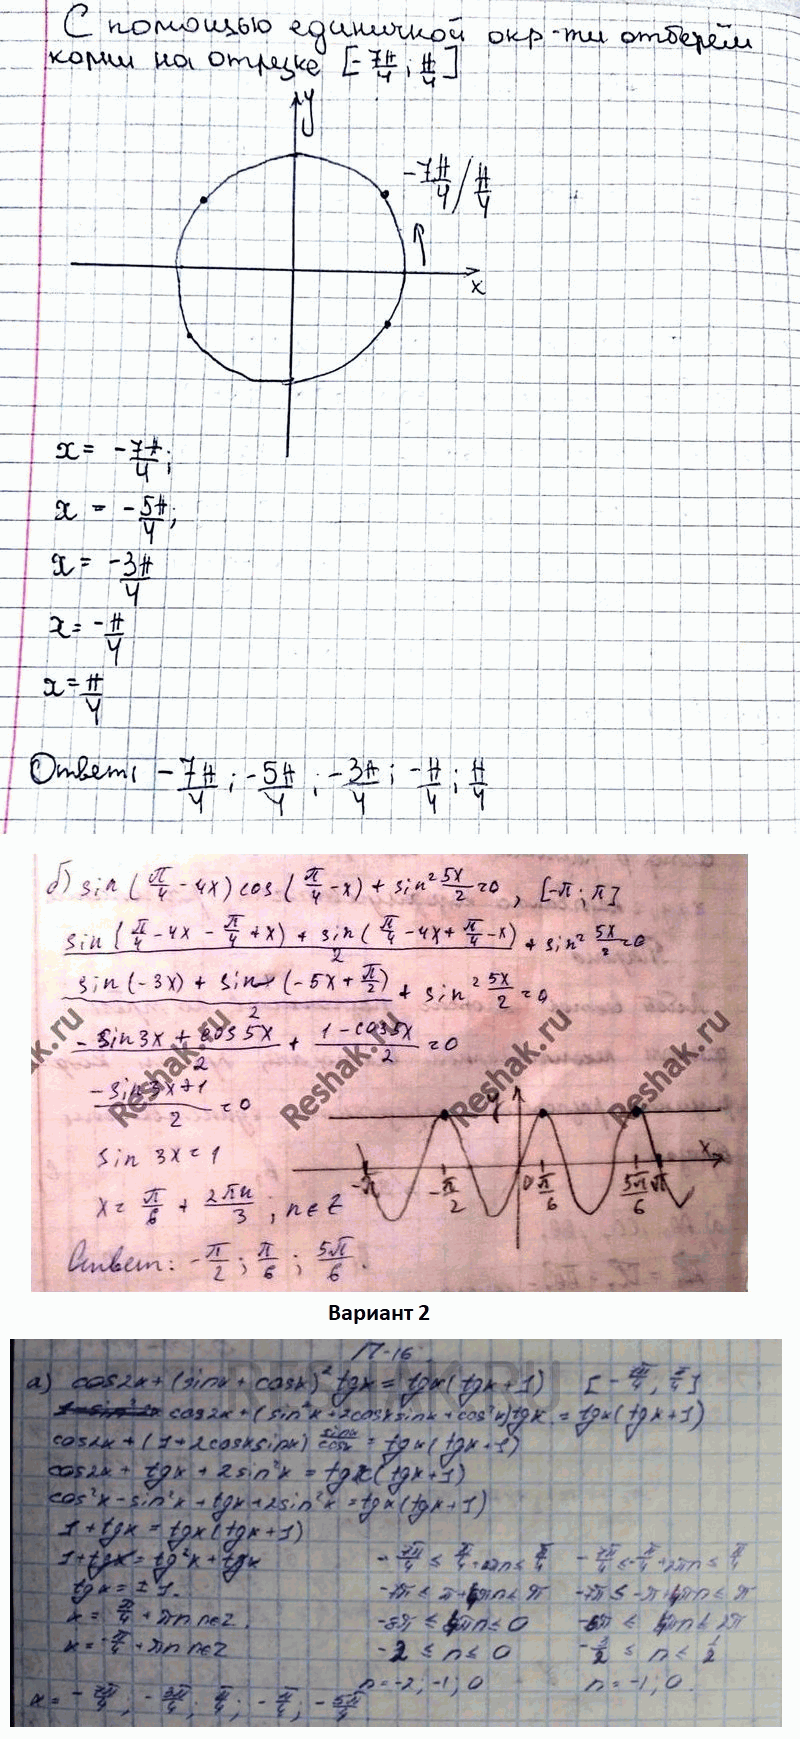 С помощью единичной окр-ти отберём
корни на отрезке [-7π/4; π/4]
y
-7π/4 / π/4
x
x = -7π/4;
x = -5π/4;
x = -3π/4
x = -π/4
x = π/4
Ответ: -7π/4; -5π/4; -3π/4; -π/4; π/4
б) sin(π/4 - 4x) cos(π/4 - x) + sin² 5x/2 = 0, [-π; π]
(sin(π/4 - 4x - π/4 + x) + sin(π/4 - 4x + π/4 - x))/2 + sin² 5x/2 = 0
(sin(-3x) + sin(-5x + π/2))/2 + sin² 5x/2 = 0
(-sin3x + cos5x)/2 + (1 - cos5x)/2 = 0
(-sin3x + 1)/2 = 0
sin 3x = 1
x = π/6 + 2πn/3, n ∈ Z
y
x
-π
-π/2
0
π/6
5π/6
π
Ответ: -π/2; π/6; 5π/6.
Reshak.ru
Reshak.ru
Reshak.ru
Вариант 2
П-16
а) cos2x + (sinx + cosx)² tgx = tgx(tgx + 1) [-7π/4, π/4]
cos2x + (sin²x + 2cosxsinx + cos²x)tgx = tgx(tgx + 1)
cos2x + (1 + 2cosxsinx) sinx/cosx = tgx(tgx + 1)
cos2x + tgx + 2sin²x = tgx(tgx + 1)
cos²x - sin²x + tgx + 2sin²x = tgx(tgx + 1)
1 + tgx = tgx(tgx + 1)
1 + tgx = tg²x + tgx
tgx = ±1.
x = π/4 + πn n∈Z.
x = -π/4 + πn n∈Z
-2 ≤ n ≤ 0
n = -2; -1; 0
-3/2 ≤ n ≤ 1/2
n = -1; 0.
x = -7π/4; -3π/4; π/4; -π/4; -5π/4